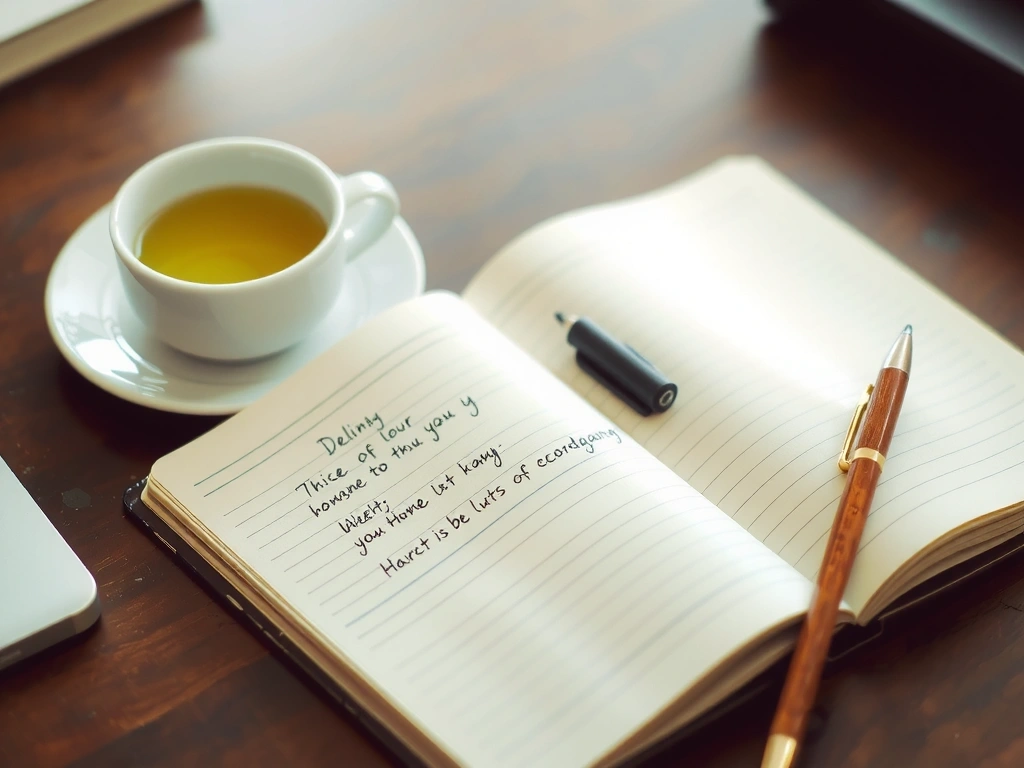 Delinty
Thice of lour
homzne to thiu you y
Week;
you Home lst kany
Harct is be luts of ecordgaing